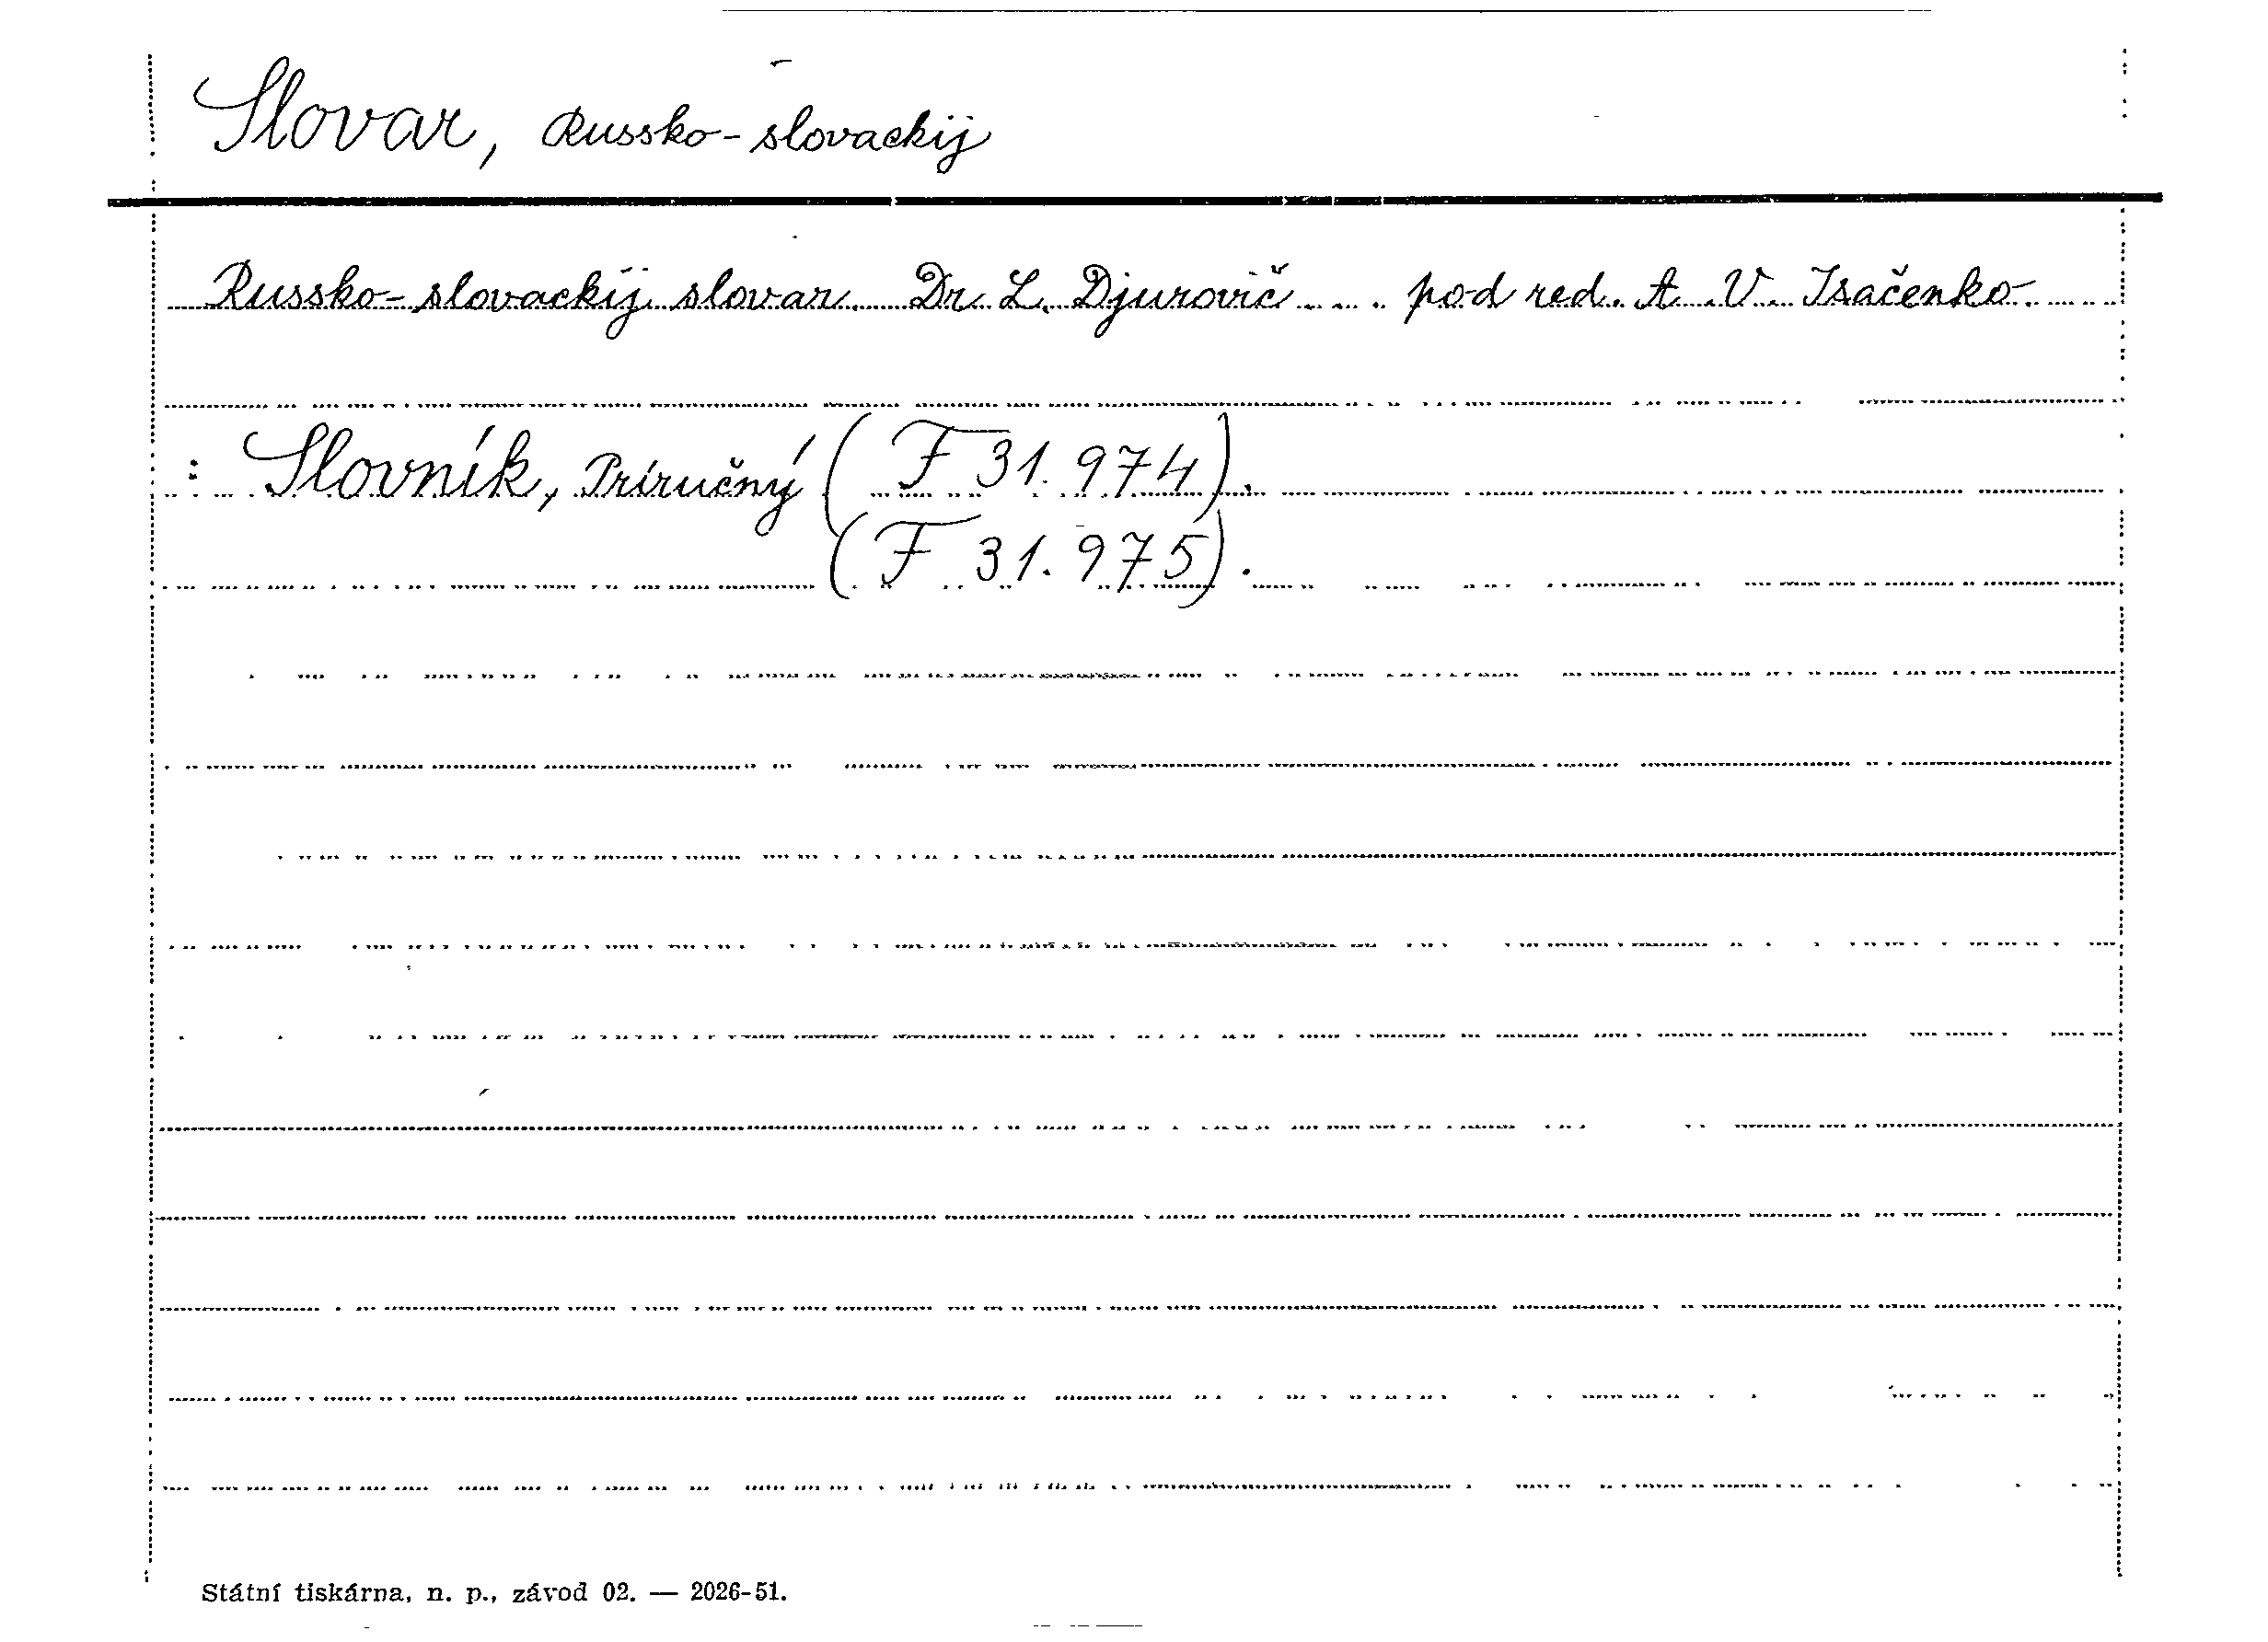 Slovar, Russko-slovackij
Russko-slovackij slovar. Dr. L. Djurovič ... pod red. A.V. Isačenko.
: Slovník, Príručný (F 31.974).
(F 31.975).
Státní tiskárna, n. p., závod 02. — 2026-51.